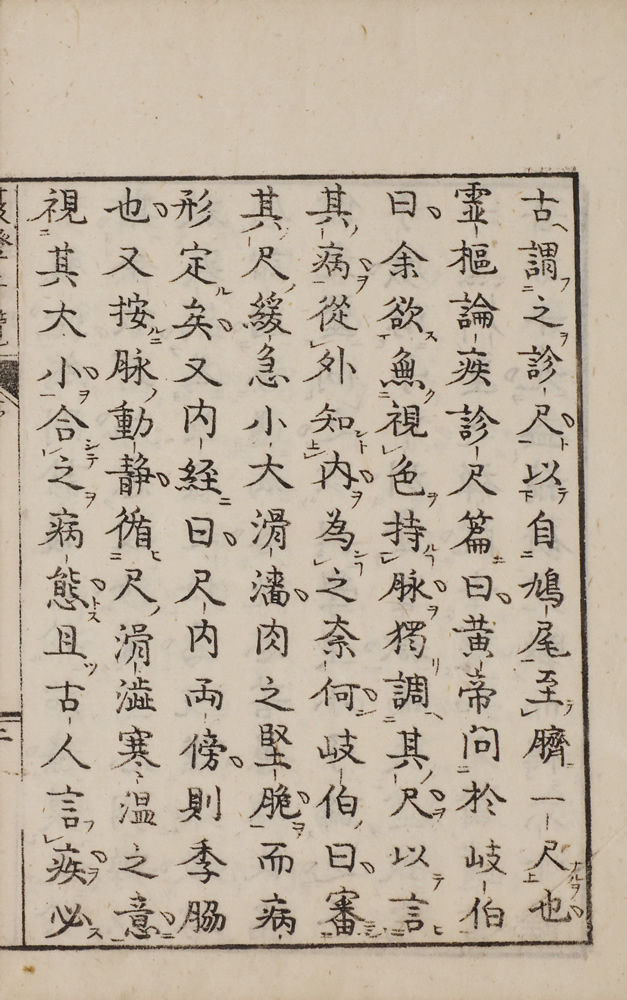 古謂之診尺以自鳩尾至臍一尺也
靈樞論疾診尺篇曰黃帝問於岐伯
曰余欲無視色持脉獨調其尺以言
其病從外知内為之柰何岐伯曰審
其尺緩急小大滑濇肉之堅脆而病
形定矣又内経曰尺内両傍則季脇
也又按脉動静循尺滑澁寒温之意
視其大小合之病態且古人言疾必